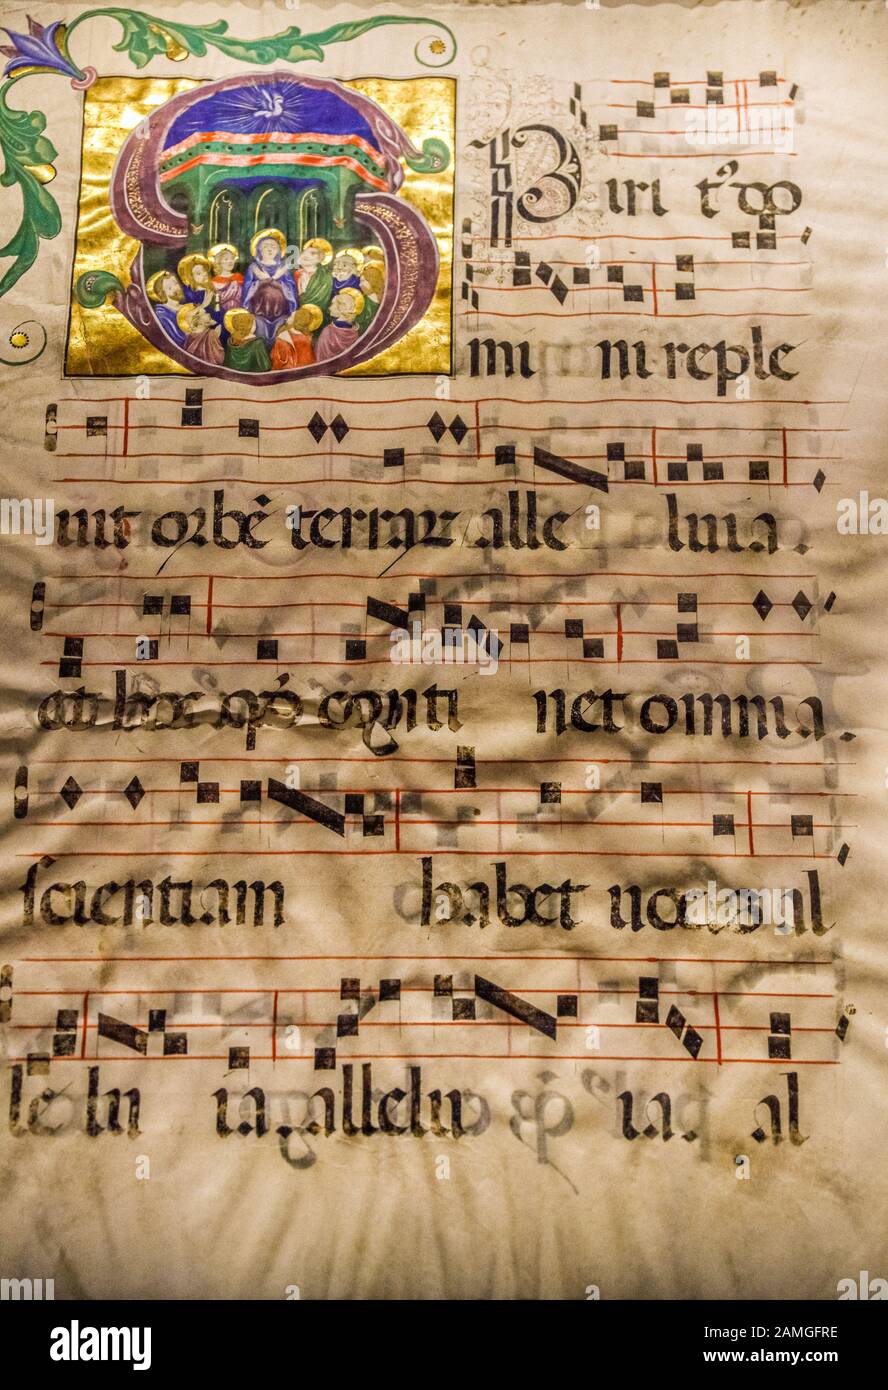 SPiri t᾽ do
mi ni reple
uit orbē terrarꝝ alle luia.
et hoc qđ cōnti net omnia.
scientiam habet uocis al
le lu ia. allelu ia. al
alamy
Image ID: 2AMGFRE
www.alamy.com